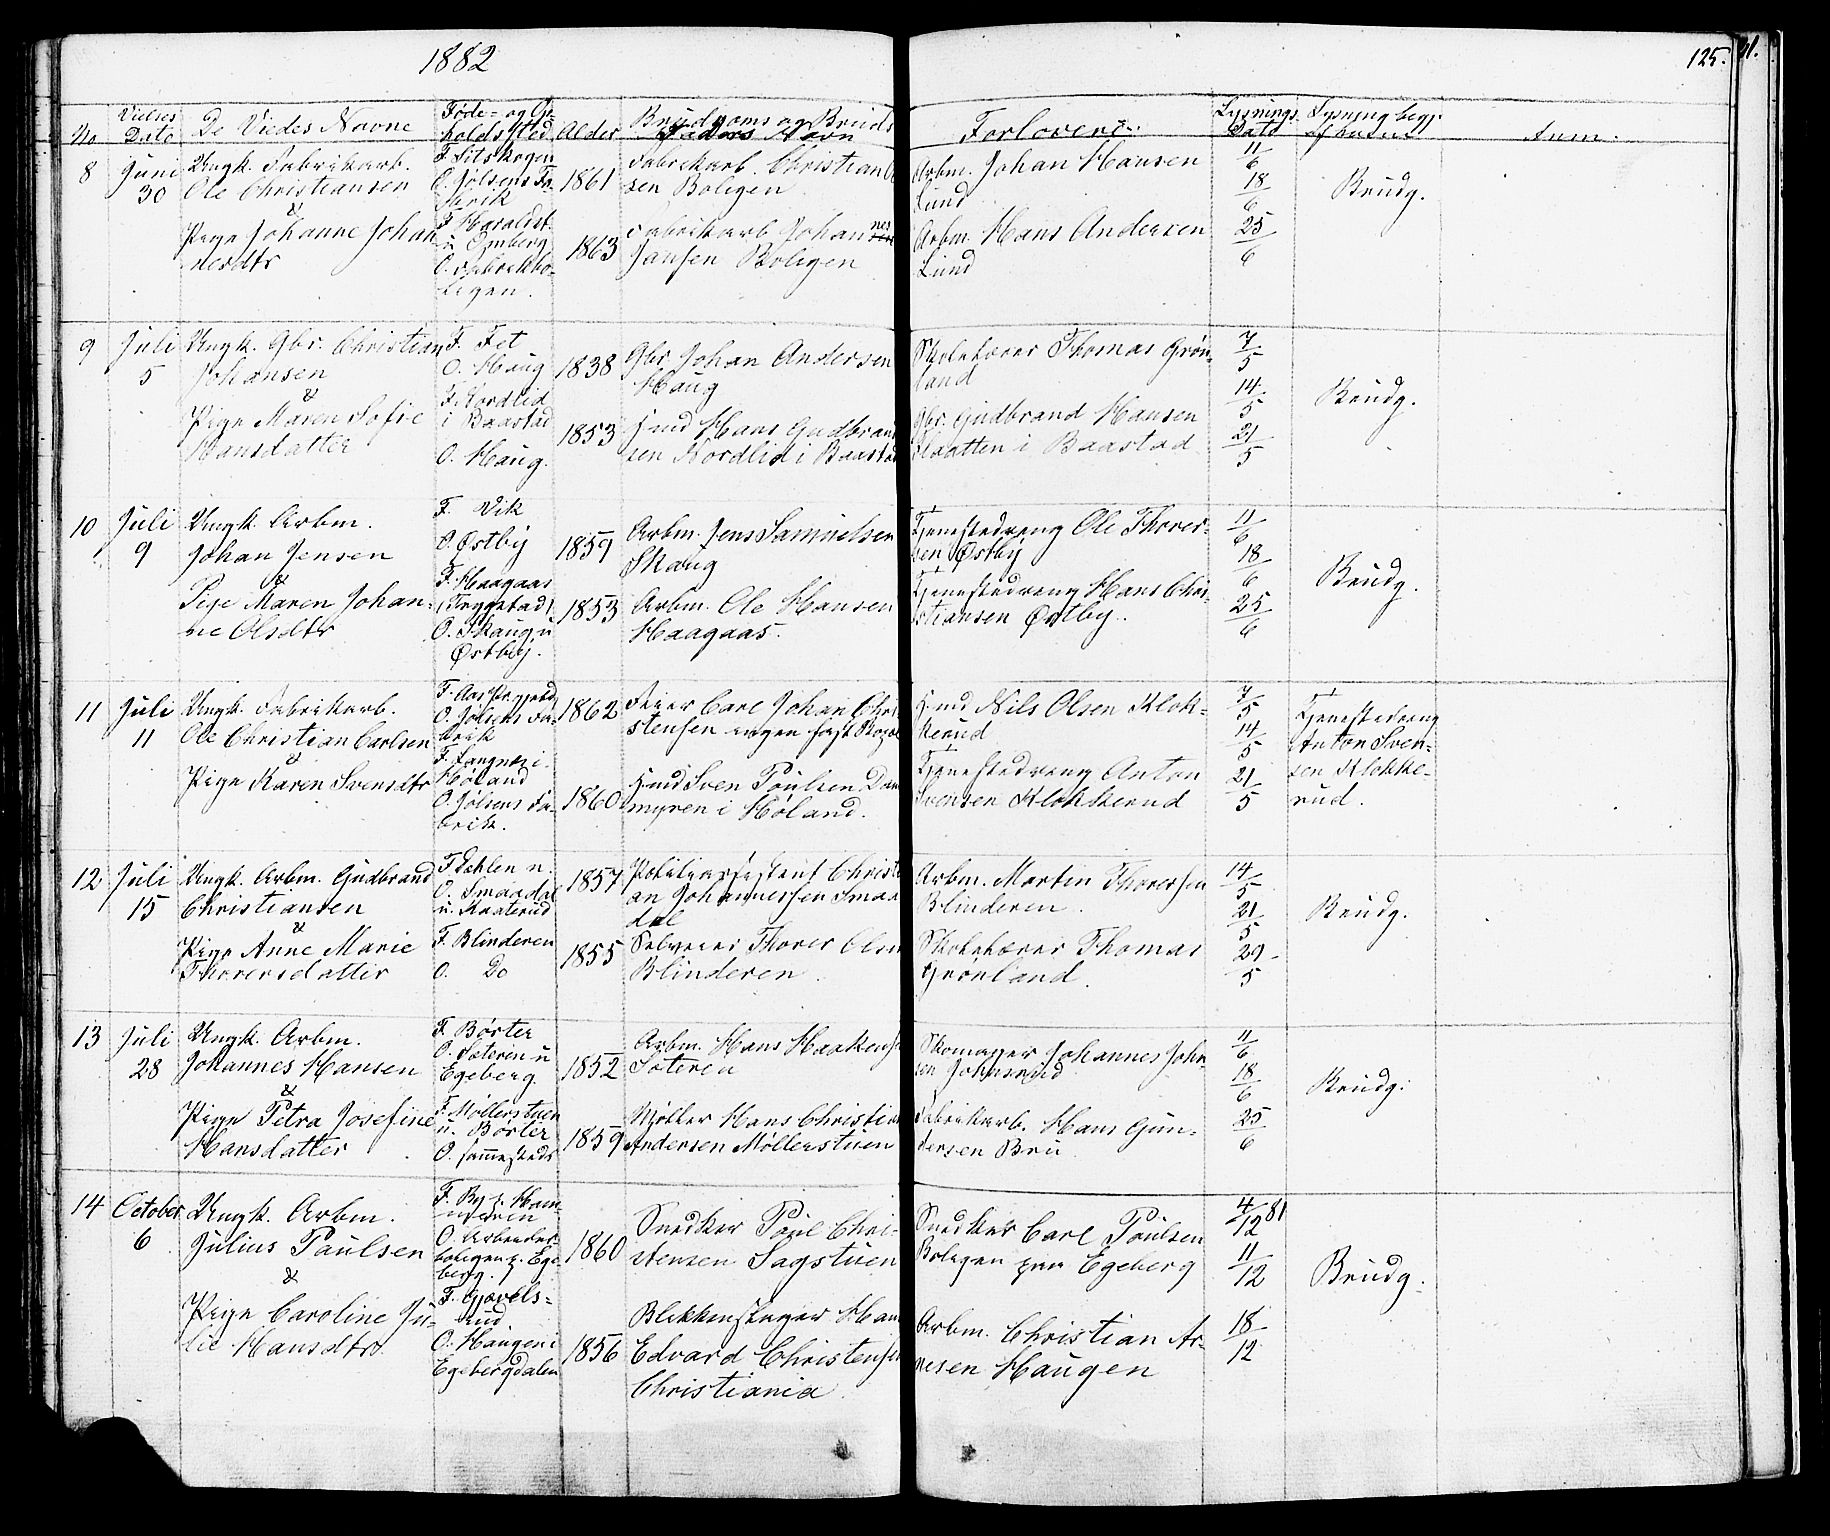 1882
125.
No
Vielses Dato
De Viedes Navne
Føde- og Op-
holdsted
Alder
Brudgoms og Bruds
Faders Navn
Forlovere
Lysnings
Dato
Lysning begj.
Anm.
8
Juni
30
Ungk. Fabrikarb.
Ole Christiansen
&
Pige Johanne Johan
nesdtr
F. Sitskogen
O. Jølsens Fa-
brik
F. Haraldst.
O. Fabrikbo-
ligen.
1861
1863
Fabrikarb. Christian
sen Boligen
Fabrikarb Johannes
Jansen Boligen
Arbm. Johan Hansen
Lund
Arbm. Hans Andersen
Lund
11/6
18/6
25/6
Brudg.
9
Juli
5
Ungk. Gbr. Christian
Johansen
&
Pige Maren Sofie
Hansdatter
F. Fet
O. Haug
F. Nordlid
i Baastad
O. Haug.
1838
1853
Gbr. Johan Andersen
Haug
Hmd Hans Gudbrand
sen Nordlid i Baastad
Skolelærer Thomas Grøn-
land
Gbr. Gudbrand Hansen
Slaatten i Baastad
7/5
14/5
21/5
Brudg.
10
Juli
9
Ungk. Arbm.
Johan Jensen
&
Pige Maren Johan-
ne Olsdtr
F. Vik
O. Østby
F. Haagaas
(Trygstad)
O. Skaug u
Østby.
1859
1853
Arbm. Jens Samuelsen
Skaug
Arbm. Ole Hansen
Haagaas.
Tjenestedreng Ole Thorer-
sen Østby
Tjenestedreng Hans Chri-
stiansen Østby.
11/6
18/6
25/6
Brudg.
11
Juli
11
Ungk. Fabrikarb.
Ole Christian Carlsen
&
Pige Karen Svensdtr
O. Jølsens Fa-
brik
F. Langnæs i
Høland
O. Jølsens Fa-
brik.
1862
1860
Feier Carl Johan Chri
stensen ingen fast Bopæl
Hmd Sven Poulsen Dam
myren i Høland.
Hmd Nils Olsen Klok-
kerud
Tjenestedreng Anton
Svensen Klokkerud
7/5
14/5
21/5
Tjenestedreng
Anton Sven-
sen Klokke-
rud.
12
Juli
15
Ungk. Arbm. Gudbrand
Christiansen
&
Pige Anne Marie
Thorersdatter
F. Dahlen u.
O. Smaadal
u. Kraaterud
F. Blinderen
O. Do
1857
1855
Politiassistent Christi
an Johannessen Smaa
dal
Selveier Thorer Olsen
Blinderen
Arbm. Martin Thorersen
Blinderen.
Skolelærer Thomas
Grønland.
14/5
21/5
29/5
Brudg.
13
Juli
28
Ungk. Arbm.
Johannes Hansen
&
Pige Petra Josefine
Hansdatter
F. Børter
O. Sæteren u
Egeberg.
F. Møllerstuen
u. Børter
O. sammesteds
1852
1859
Arbm. Hans Haakens
Sæteren
Møller Hans Christian
Andersen Møllerstuen
Skomager Johannes John
sen Johnsrud
Fabrikarb. Hans Gun-
dersen Bru
11/6
18/6
25/6
Brudg.
14
October
6
Ungk. Arbm.
Julius Paulsen
&
Pige Caroline Ju-
lie Hansdtr.
O. Arbeider
boligen p. Ege
berg.
F. Gjævels-
rud
O. Haugen i
Egebergdalen
1860
1856
Snedker Poul Chri-
stensen Sagstuen
Blikkenslager Hans
Edvard Christensen
Christiania.
Snedker Carl Poulsen
Boligen paa Egeberg
Arbm. Christian Ar-
nesen Haugen
4/12 81
11/12
18/12
Brudg.